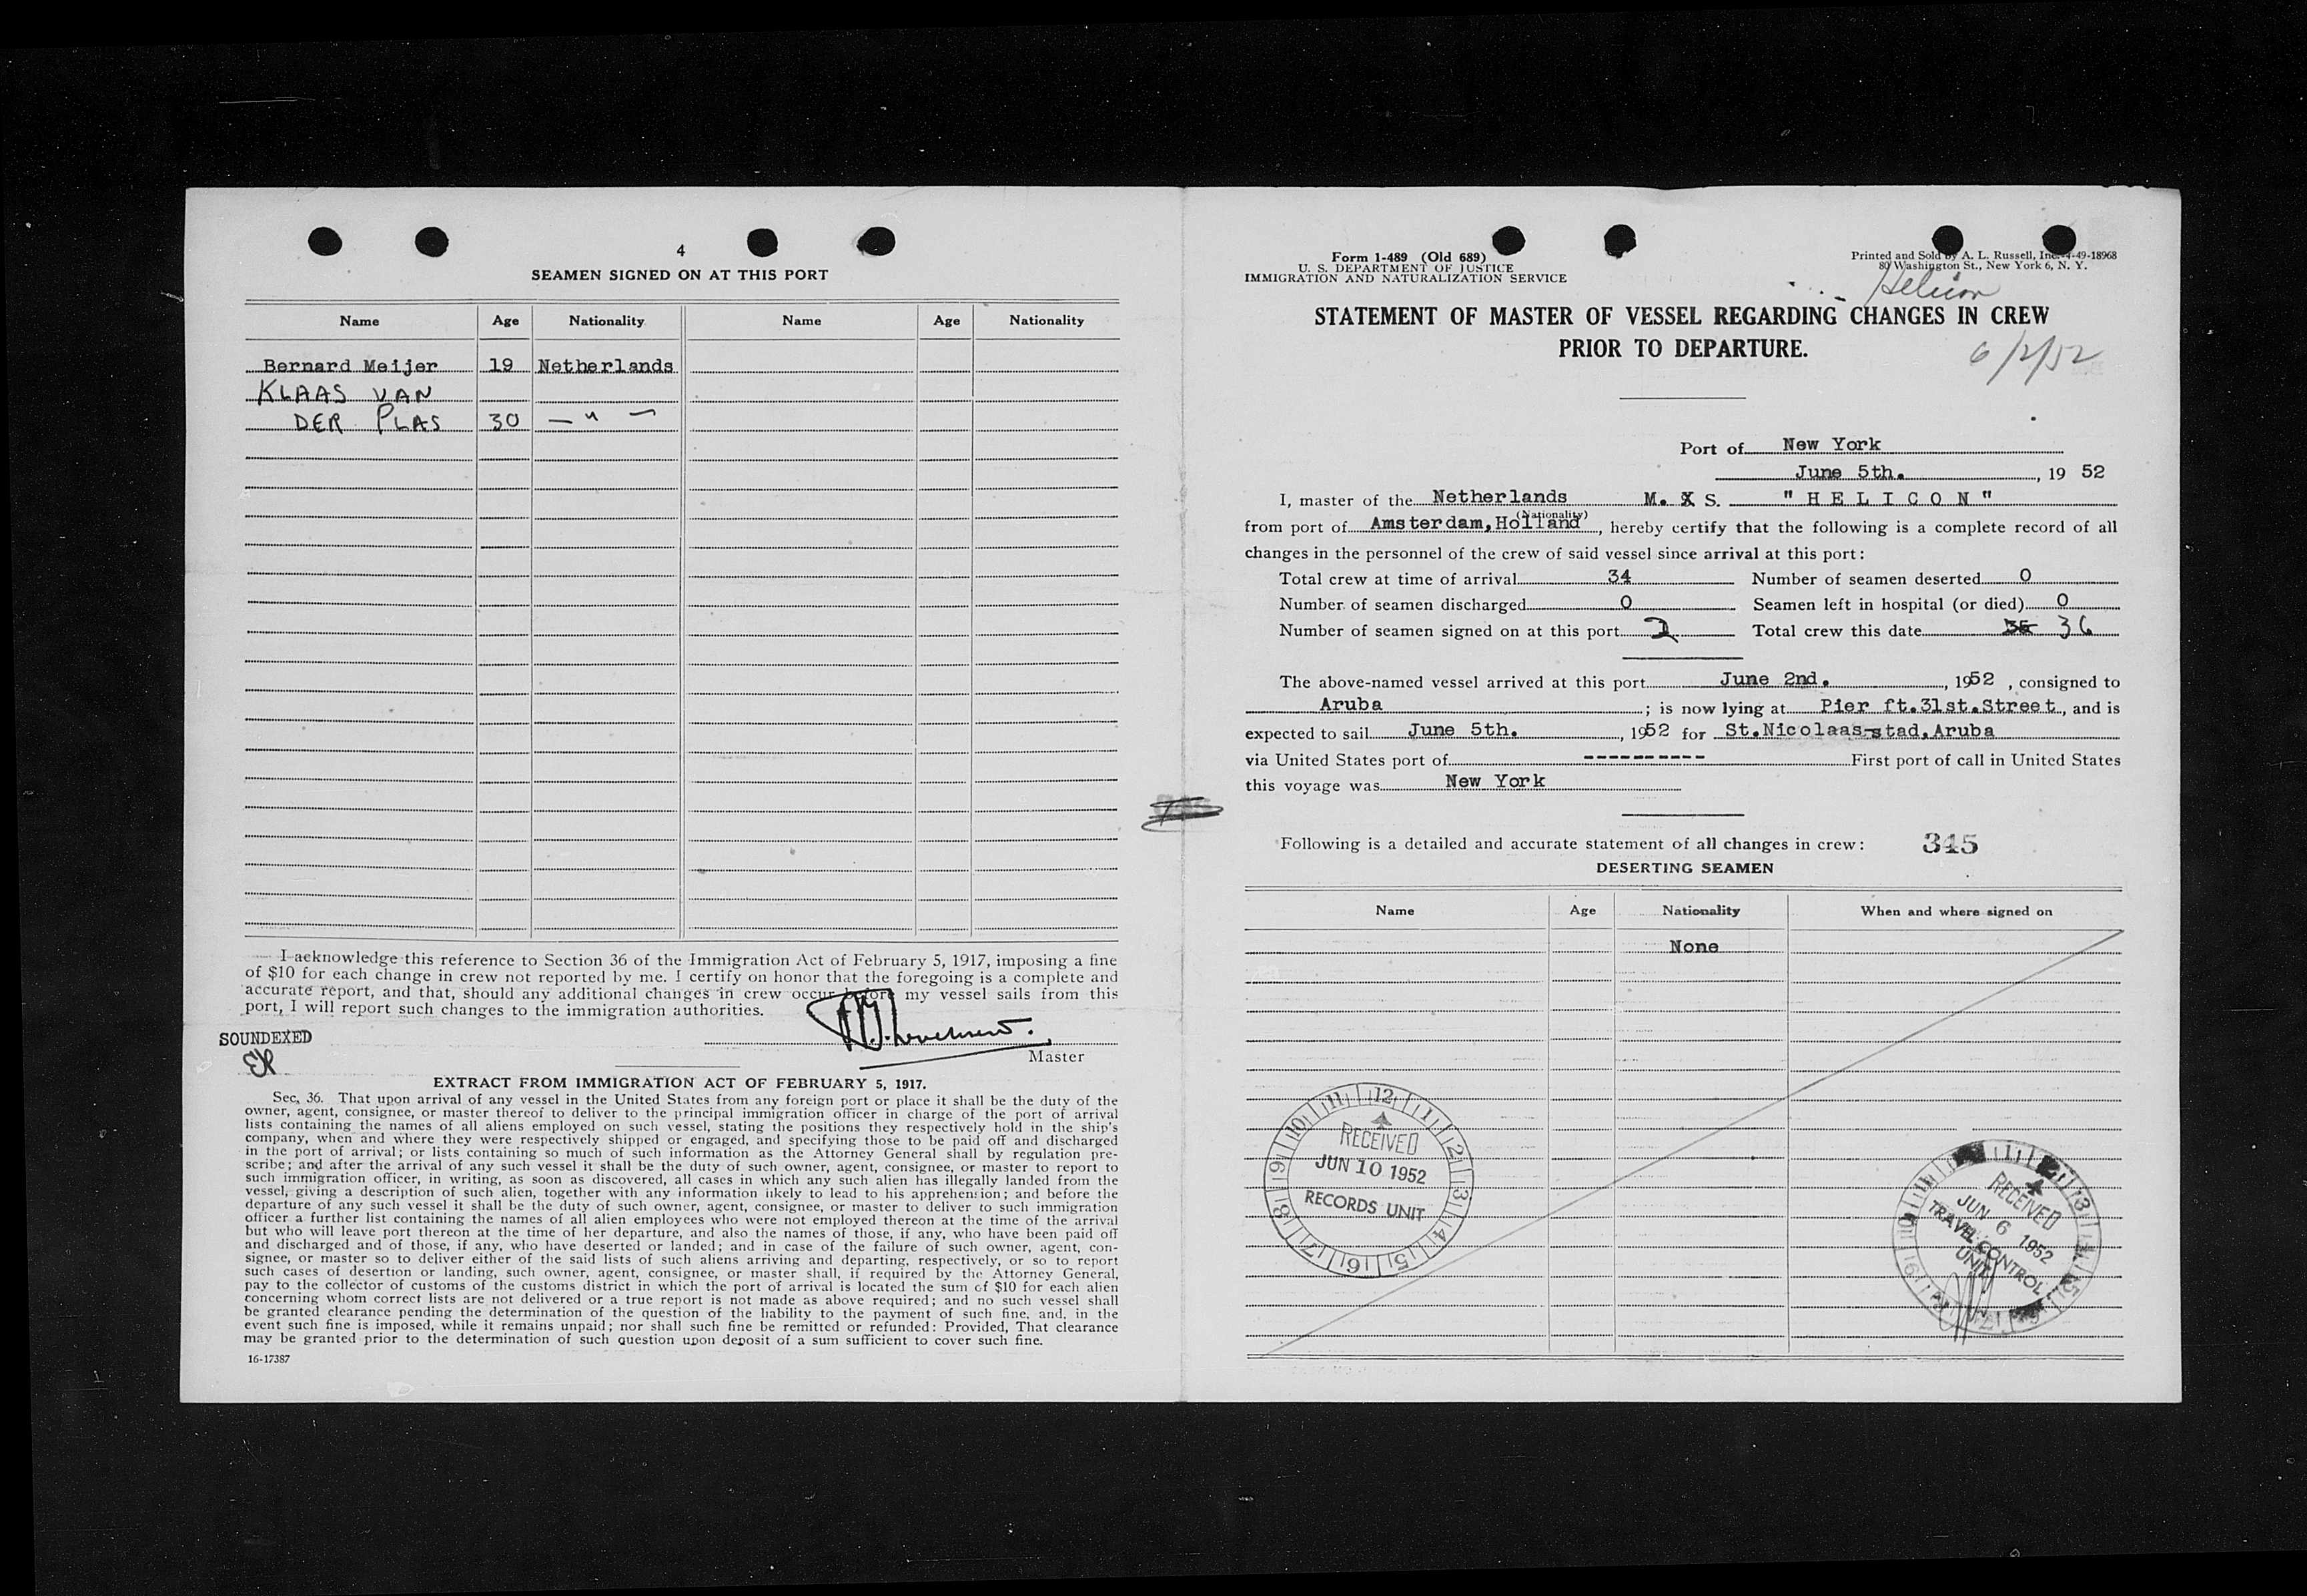 4
SEAMEN SIGNED ON AT THIS PORT
Name Age Nationality Name Age Nationality
Bernard Meijer 19 Netherlands
KLAAS VAN
DER PLAS 30 — " —
I acknowledge this reference to Section 36 of the Immigration Act of February 5, 1917, imposing a fine
of $10 for each change in crew not reported by me. I certify on honor that the foregoing is a complete and
accurate report, and that, should any additional changes in crew occur before my vessel sails from this
port, I will report such changes to the immigration authorities.
SOUNDEXED
Master
EXTRACT FROM IMMIGRATION ACT OF FEBRUARY 5, 1917.
Sec. 36. That upon arrival of any vessel in the United States from any foreign port or place it shall be the duty of the
owner, agent, consignee, or master thereof to deliver to the principal immigration officer in charge of the port of arrival
lists containing the names of all aliens employed on such vessel, stating the positions they respectively hold in the ship's
company, when and where they were respectively shipped or engaged, and specifying those to be paid off and discharged
in the port of arrival; or lists containing so much of such information as the Attorney General shall by regulation pre-
scribe; and after the arrival of any such vessel it shall be the duty of such owner, agent, consignee, or master to report to
such immigration officer, in writing, as soon as discovered, all cases in which any such alien has illegally landed from the
vessel, giving a description of such alien, together with any information likely to lead to his apprehension; and before the
departure of any such vessel it shall be the duty of such owner, agent, consignee, or master to deliver to such immigration
officer a further list containing the names of all alien employees who were not employed thereon at the time of the arrival
but who will leave port thereon at the time of her departure, and also the names of those, if any, who have been paid off
and discharged and of those, if any, who have deserted or landed; and in case of the failure of such owner, agent, con-
signee, or master so to deliver either of the said lists of such aliens arriving and departing, respectively, or so to report
such cases of desertion or landing, such owner, agent, consignee, or master shall, if required by the Attorney General,
pay to the collector of customs of the customs district in which the port of arrival is located the sum of $10 for each alien
concerning whom correct lists are not delivered or a true report is not made as above required; and no such vessel shall
be granted clearance pending the determination of the question of the liability to the payment of such fine, and, in the
event such fine is imposed, while it remains unpaid; nor shall such fine be remitted or refunded: Provided, That clearance
may be granted prior to the determination of such question upon deposit of a sum sufficient to cover such fine.
16-17387
Form 1-489 (Old 689)
U. S. DEPARTMENT OF JUSTICE
IMMIGRATION AND NATURALIZATION SERVICE
Printed and Sold by A. L. Russell, Inc. 4-49-18968
80 Washington St., New York 6, N. Y.
Helicon
STATEMENT OF MASTER OF VESSEL REGARDING CHANGES IN CREW
PRIOR TO DEPARTURE.
6/2/52
Port of New York
June 5th. , 19 52
I, master of the Netherlands M. X S. "HELICON"
(Nationality)
from port of Amsterdam, Holland , hereby certify that the following is a complete record of all
changes in the personnel of the crew of said vessel since arrival at this port:
Total crew at time of arrival 34 Number of seamen deserted 0
Number of seamen discharged 0 Seamen left in hospital (or died) 0
Number of seamen signed on at this port 2 Total crew this date 35 36
The above-named vessel arrived at this port June 2nd. , 1952 , consigned to
Aruba ; is now lying at Pier ft.31st.Street , and is
expected to sail June 5th. , 1952 for St.Nicolaas-stad,Aruba
via United States port of ---------- First port of call in United States
this voyage was New York
Following is a detailed and accurate statement of all changes in crew: 345
DESERTING SEAMEN
Name Age Nationality When and where signed on
None
12 1 2 3 4 5 6 7 8 9 10 11
RECEIVED
JUN 10 1952
RECORDS UNIT
RECEIVED
JUN 6 1952
TRAVEL CONTROL
UNIT